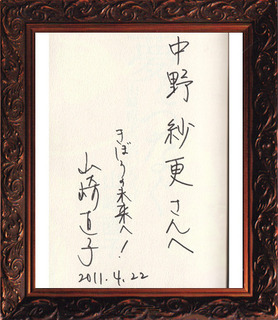 中野 紗更さんへ
きぼうの未来へ!
山崎直子
2011.4.22